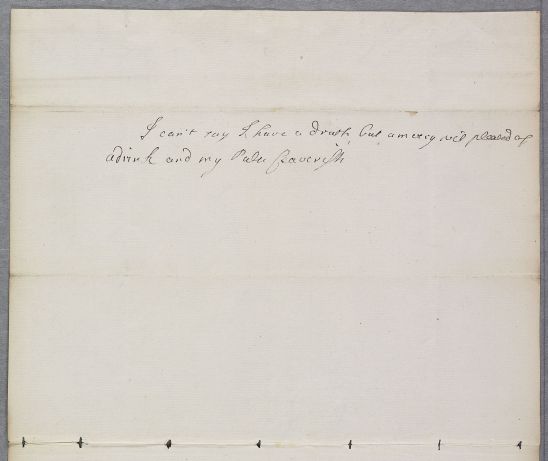 I can't say I have a druth, but am very well pleased of
adrink and my Pulse feaverish